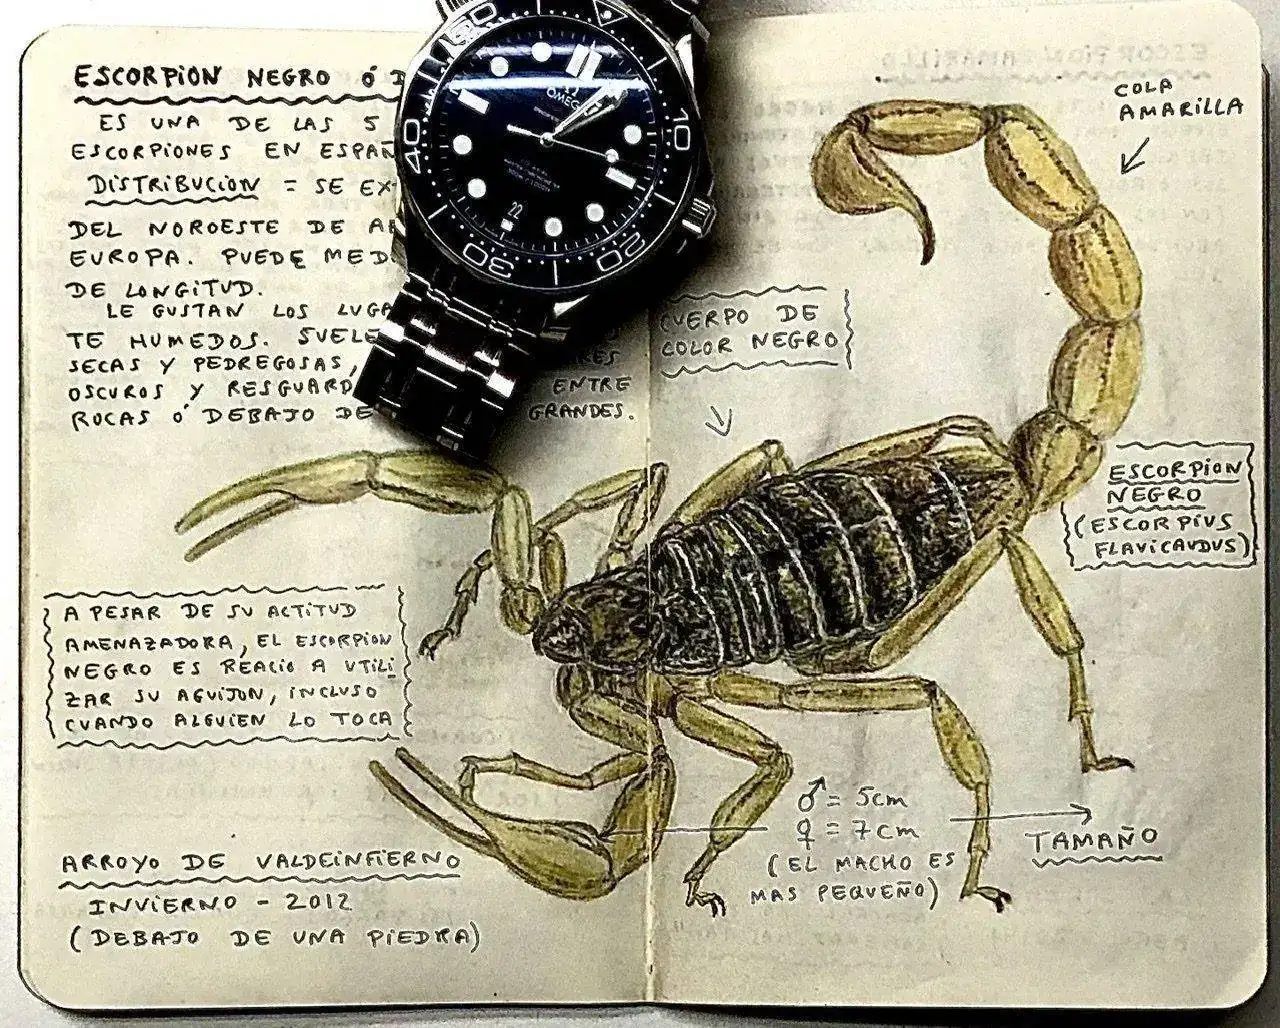 ESCORPION NEGRO Ó D
ES UNA DE LAS 5
ESCORPIONES EN ESPAÑ
DISTRIBUCION = SE EX
DEL NOROESTE DE
EUROPA. PUEDE MED
DE LONGITUD.
LE GUSTAN LOS LUGA
TE HUMEDOS. SUELE
SECAS Y PEDREGOSAS,
OSCUROS Y RESGUARD ENTRE
ROCAS Ó DEBAJO DE GRANDES.
OMEGA
10
20
30
40
50
22
COLA
AMARILLA
CUERPO DE
COLOR NEGRO
ESCORPION
NEGRO
(ESCORPIUS
FLAVICAUDUS)
A PESAR DE SU ACTITUD
AMENAZADORA, EL ESCORPION
NEGRO ES REACIO A UTILI-
ZAR SU AGUIJON, INCLUSO
CUANDO ALGUIEN LO TOCA
♂ = 5cm
♀ = 7cm
(EL MACHO ES
MAS PEQUEÑO)
TAMAÑO
ARROYO DE VALDEINFIERNO
INVIERNO - 2012
(DEBAJO DE UNA PIEDRA)